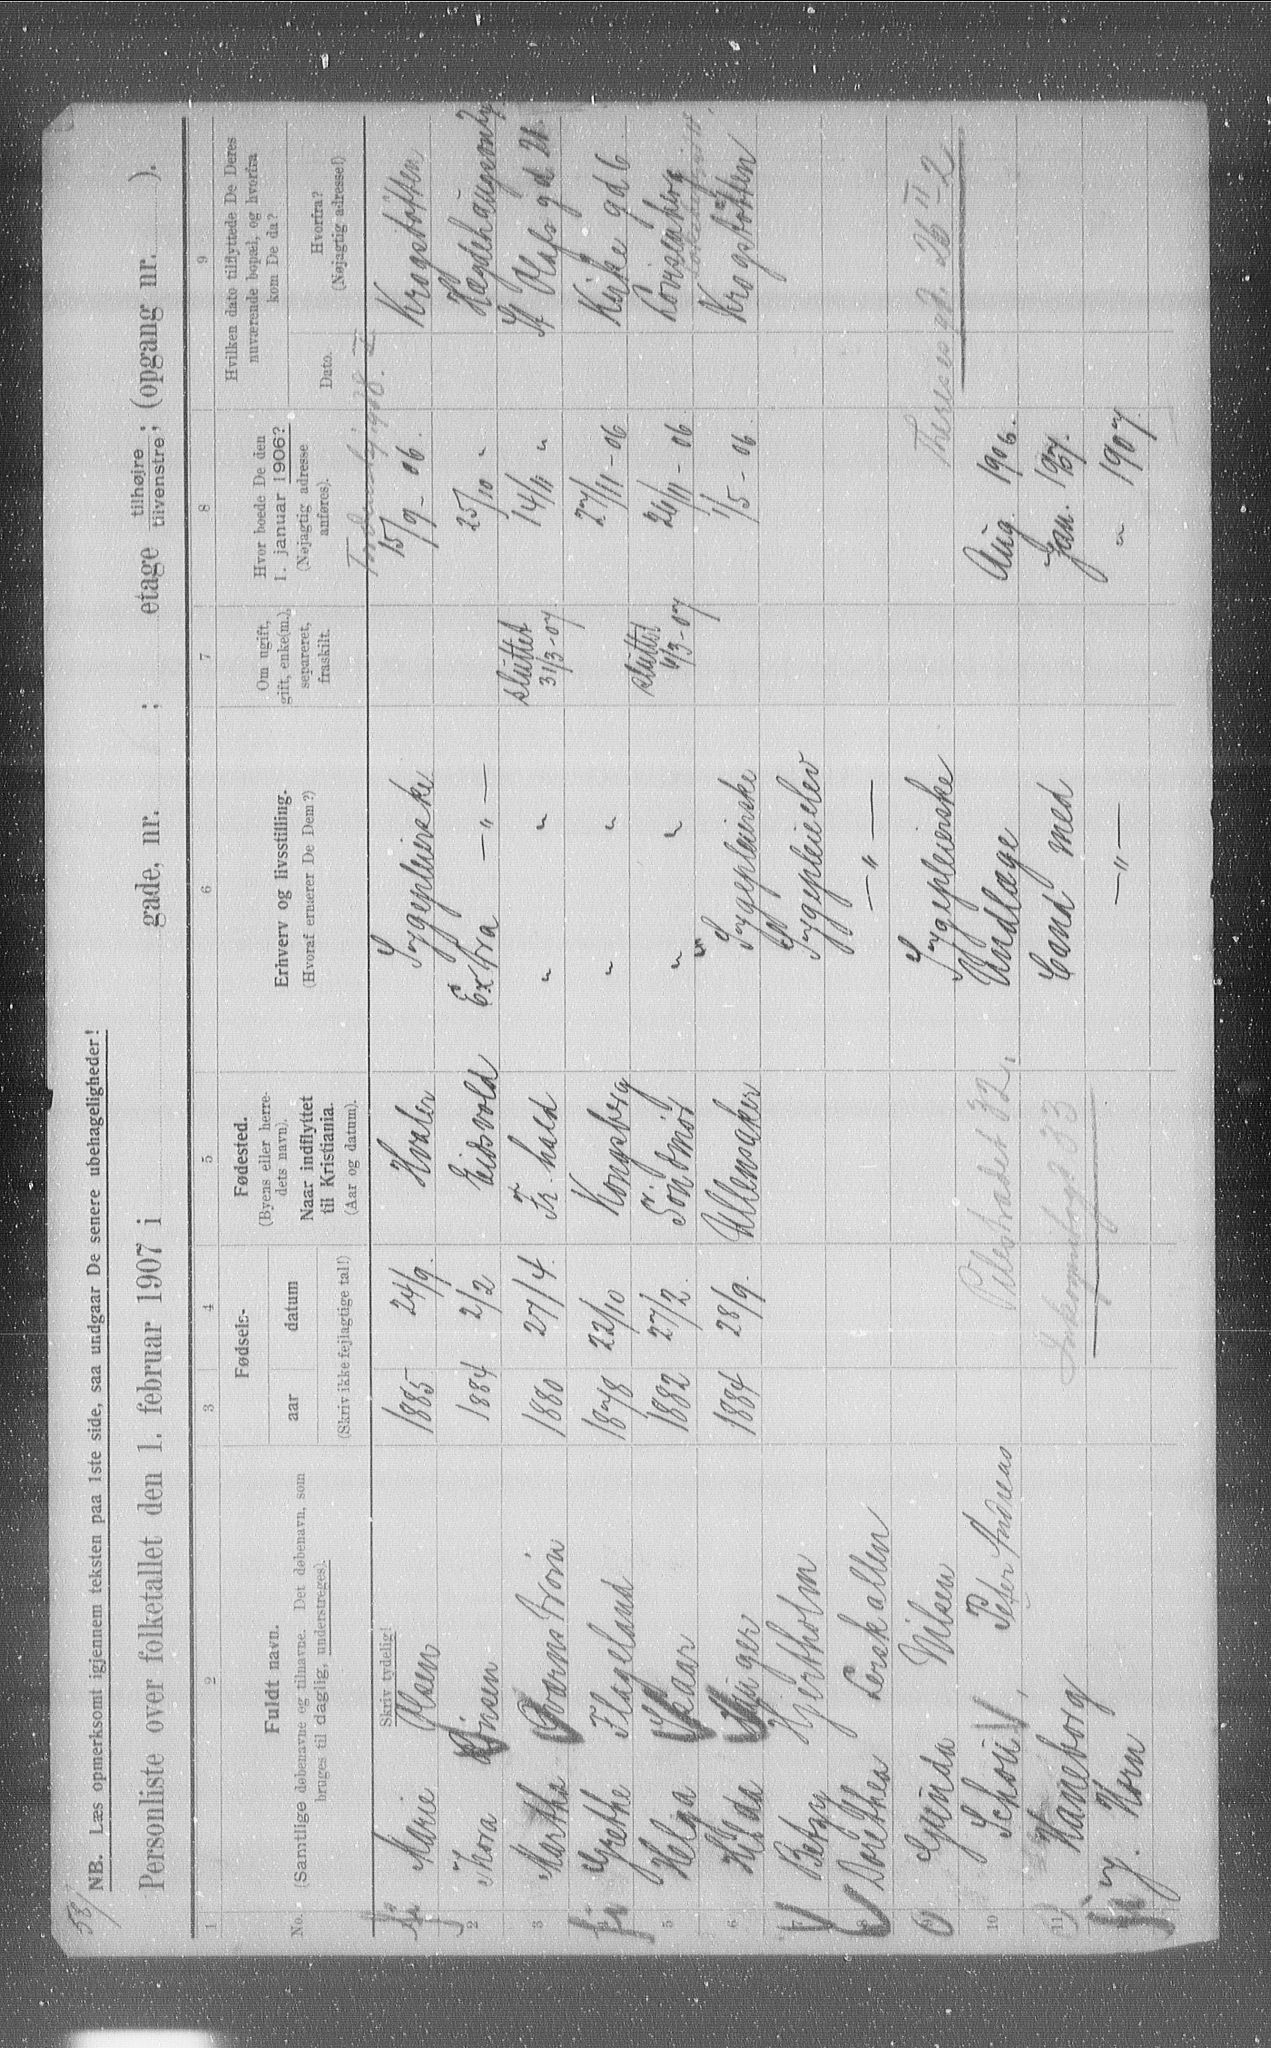 53/
NB. Læs opmerksomt igjennem teksten paa 1ste side, saa undgaar De senere ubehageligheder!
Personliste over folketallet den 1. februar 1907 i gade, nr. ; etage tilhøjre / tilvenstre; (opgang nr. ).
1 2 3 4 5 6 7 8 9
No.
Fuldt navn.
(Samtlige døbenavne og tilnavne. Det døbenavn, som
bruges til daglig, understreges).
Skriv tydelig!
Fødsels-
aar datum
(Skriv ikke fejlagtige tal!)
Fødested.
(Byens eller herre-
dets navn).
Naar indflyttet
til Kristiania.
(Aar og datum).
Erhverv og livsstilling.
(Hvoraf ernærer De Dem?)
Om ugift,
gift, enke(m.),
separeret,
fraskilt.
Hvor boede De den
1. januar 1906?
(Nøjagtig adresse
anføres).
Hvilken dato tilflyttede De Deres
nuværende bopæl, og hvorfra
kom De da?
Dato.
Hvorfra?
(Nøjagtig adresse!)
Marie Olsen 1885 24/9. Hvaler Sygepleierske 15/9 - 06. Krogstøtten
2 Thora Jensen 1884 2/2 Eidsvold Extra —"— 25/10 "
3 Martha 1880 27/4. Fr.hald " " sluttet 31/3-07 14/11 " St Olafs gd 21.
Grethe Flageland 1878 22/10 Kongsberg " " 27/11 - 06 Kirke gd 6
5 Helga Skaar 1882 27/2. Söndmör " " sluttet 4/3-07 26/11 - 06 Lovisenberg
6 Hilda Unger 1884 28/9. Ullensaker Sygepleierske 1/5 - 06. Krogstøtten
7 Betzy Hjertholm Sygepleieelev
8 Dorethea Lerskallen —"—
Gunda Nilsen Sygepleierske Theresesgd. 26 II
10 Schou Peter Andreas Pilestrædet 32, Undlæge Aug. 1906.
11 Haneborg 33 Cand med Jan. 1907.
J. Horn —"— " 1907.